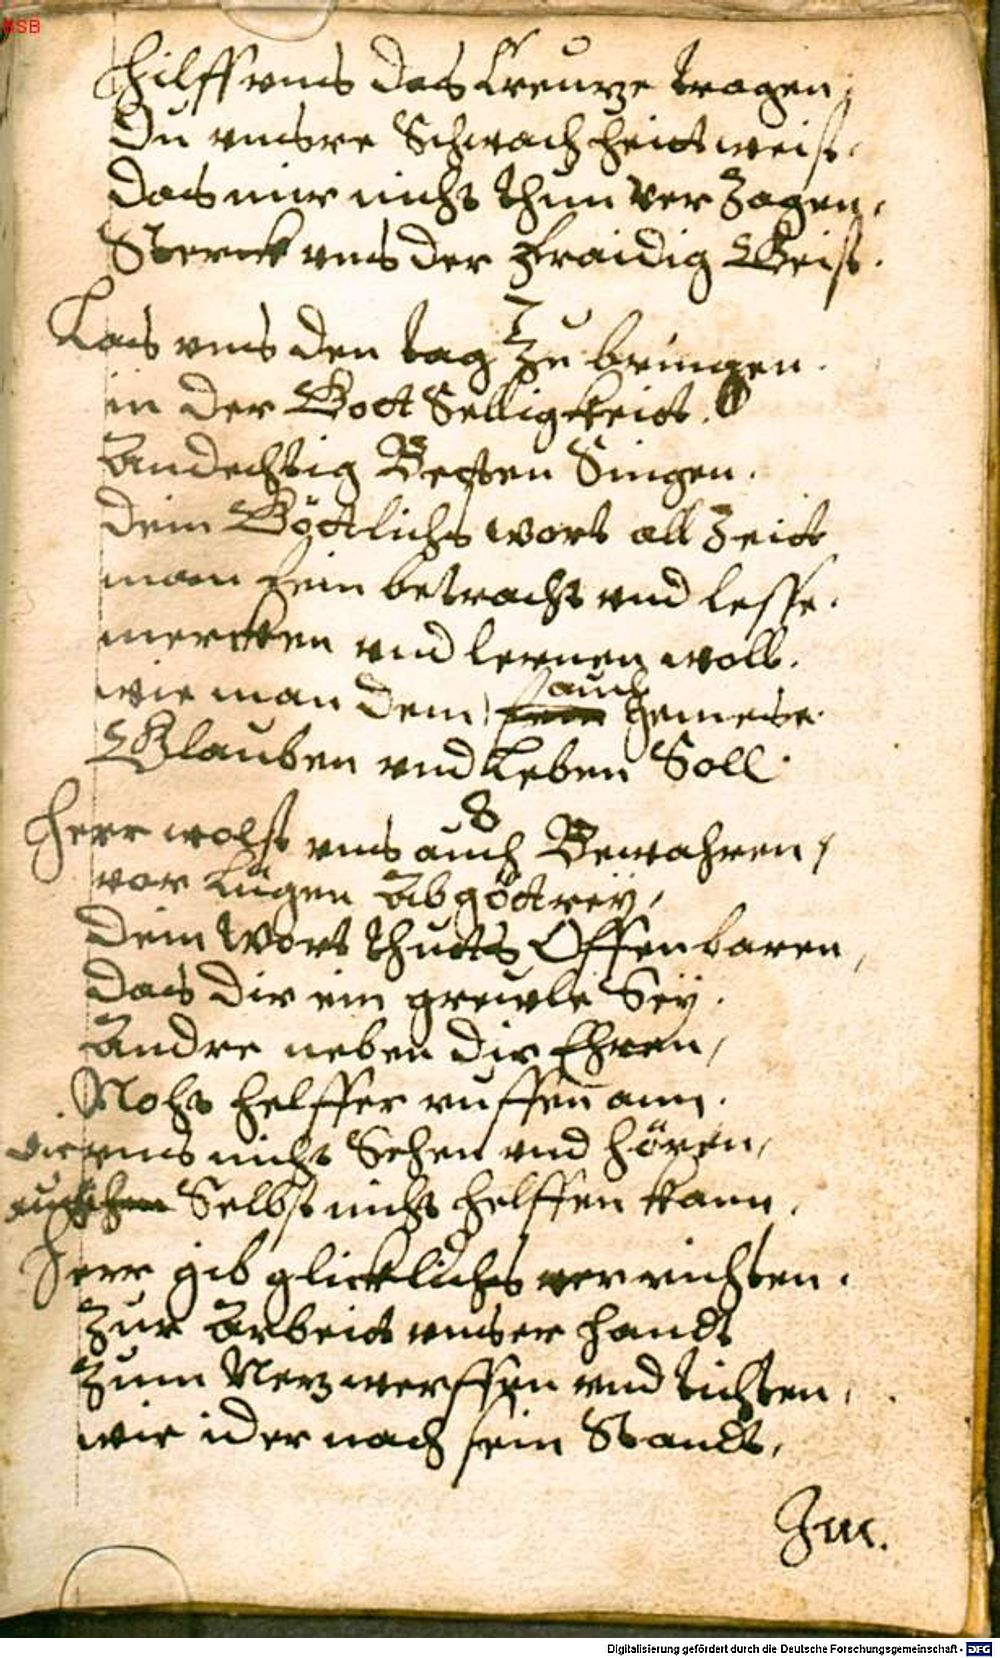 BSB
Hilff vns das Creutze tragen,
Du vnsre Schwachheit weist.
das wir nicht thun verzagen,
Sterck vns der fraidig Geist.
7
Las vns den tag Zu bringen.
in der Gott Selligkeitt.
Andechtig Betten Singen.
dein Göttlichs wort all Zeitt
man fein betracht vnd lesse.
mercken vnd lernen woll.
wie man dem auch gemese
Glauben vnd Leben Soll.
8
Herr wolst vns auch Bewahren,
vor Lügen Abgöttrey,
Dein Wort thutts Offenbaren,
das dir ein grewle Sey.
Andre neben dir Ehren,
Noht helffer ruffen ann.
die vns nicht Sehen vnd hören,
Selbst nicht helffen kann.
Herr gib glicklichs verrichten.
Zur Arbeit vnser handt
Zum Netz werffen vnd tichten,
wie ider nach sein Standt,
Im.
Digitalisierung gefördert durch die Deutsche Forschungsgemeinschaft - DFG